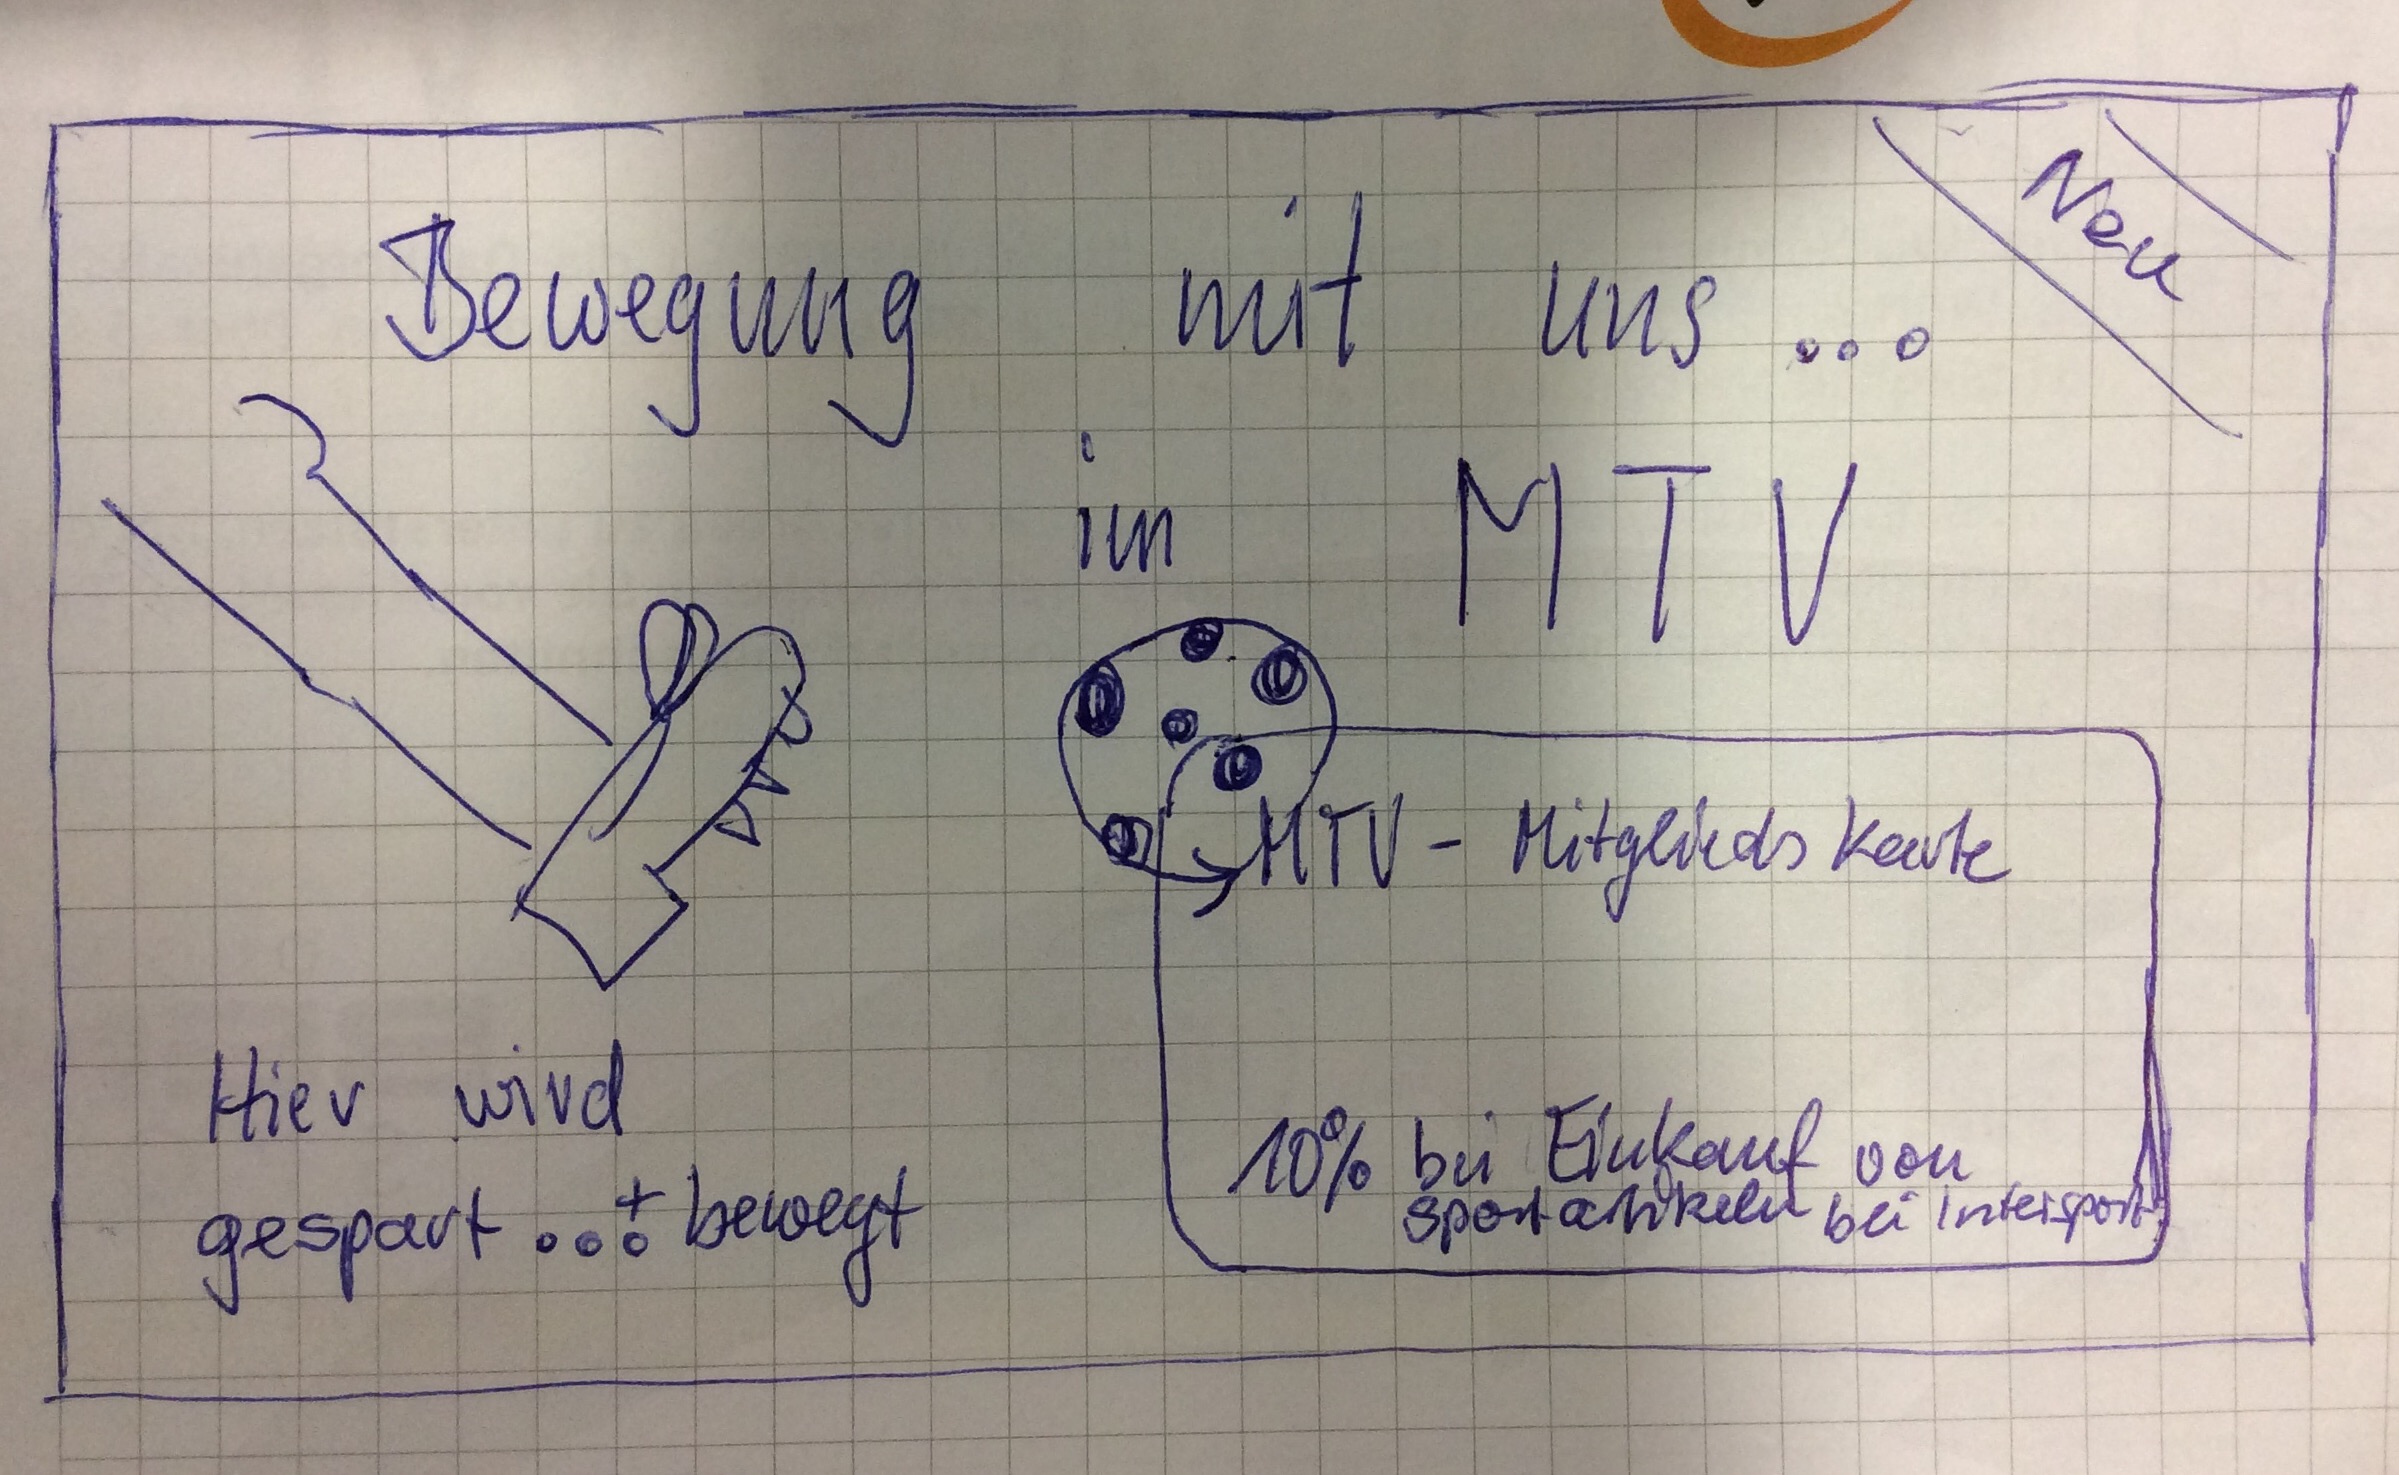 Neu
Bewegung mit uns ...
im MTV
MTV - Mitgliedskarte
Hier wird
gespart ... + bewegt
10% bei Einkauf von
Sportartikeln bei Intersport